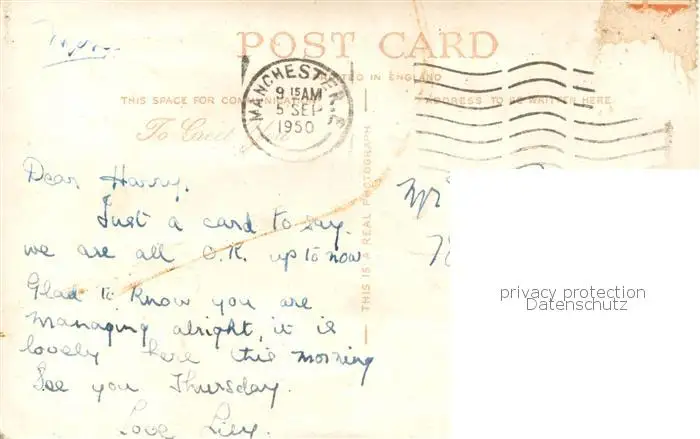 Mon.
POST CARD
PRINTED IN ENGLAND
THIS SPACE FOR COMMUNICATION
ADDRESS TO BE WRITTEN HERE
MANCHESTER
9 15 AM
5 SEP
1950
To Greet You
THIS IS A REAL PHOTOGRAPH
Dear Harry.
Just a card to say
we are all O.K. up to now
Glad to know you are
managing alright, it is
lovely here this morning
See you Thursday.
Love Lily.
Mr
privacy protection
Datenschutz